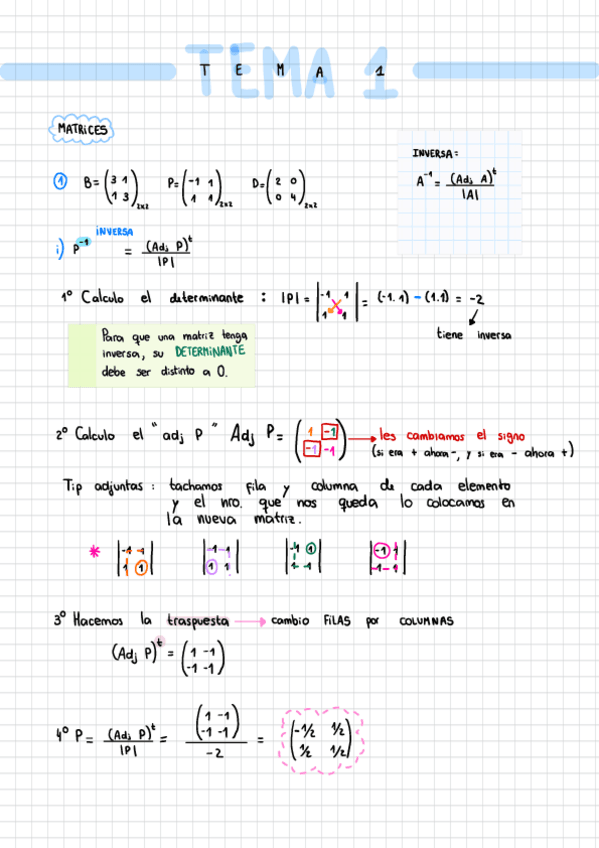 TEMA 1
T E M A 1
MATRICES
INVERSA:
A⁻¹ = (Adj A)ᵗ / |A|
① B = (3 1 / 1 3)₂ₓ₂ P = (-1 1 / 1 1)₂ₓ₂ D = (2 0 / 0 4)₂ₓ₂
INVERSA
i) P⁻¹ = (Adj P)ᵗ / |P|
1º Calculo el determinante : |P| = |-1 1 / 1 1| = (-1.1) - (1.1) = -2
tiene inversa
Para que una matriz tenga
inversa, su DETERMINANTE
debe ser distinto a 0.
2º Calculo el "adj P" Adj P = (1 -1 / -1 -1) → les cambiamos el signo
(si era + ahora -, y si era - ahora +)
Tip adjuntas : tachamos fila y columna de cada elemento
y el nro. que nos queda lo colocamos en
la nueva matriz.
* |-1 1 / 1 1| |-1 1 / 1 1| |-1 1 / 1 1| |-1 1 / 1 1|
3º Hacemos la traspuesta → cambio FILAS por COLUMNAS
(Adj P)ᵗ = (1 -1 / -1 -1)
4º P = (Adj P)ᵗ / |P| = (1 -1 / -1 -1) / -2 = (-1/2 1/2 / 1/2 1/2)